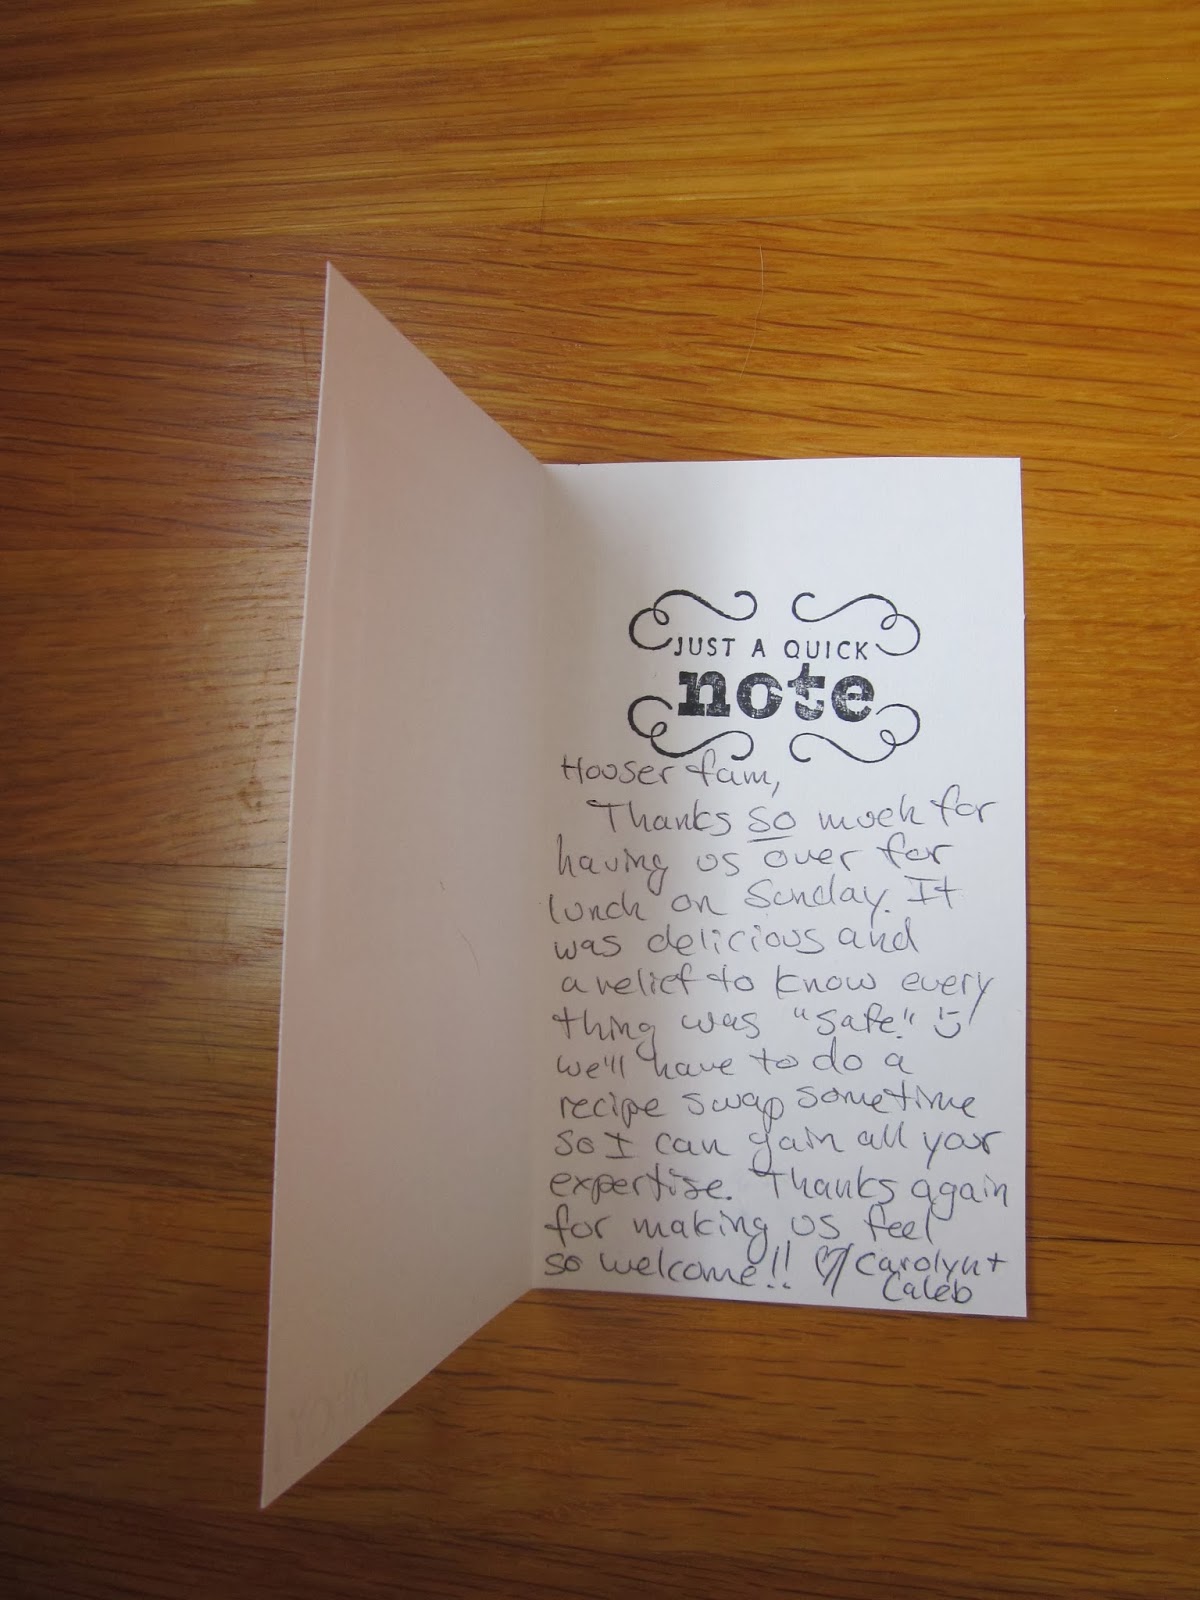 JUST A QUICK
note
Houser fam,
Thanks so much for
having us over for
lunch on Sunday. It
was delicious and
a relief to know every
thing was "safe."
we'll have to do a
recipe swap sometime
so I can gain all your
expertise. Thanks again
for making us feel
so welcome!! Carolyn +
Caleb